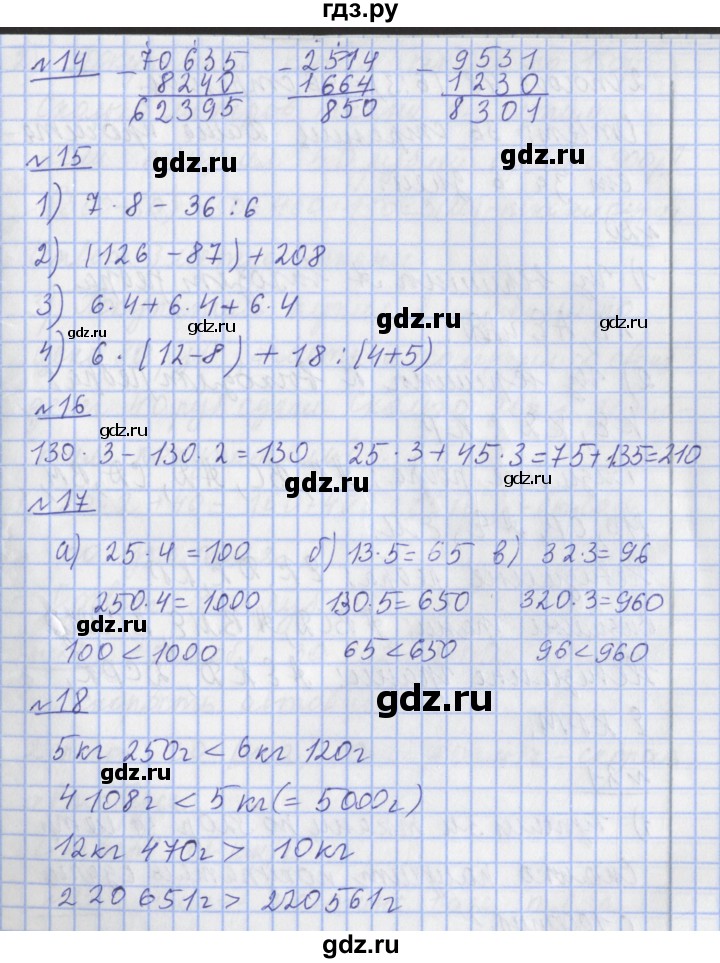 гдз.ру
№14 - 70635 - 2514 - 9531
8240 1664 1230
62395 850 8301
№15
gdz.ru gdz.ru
1) 7·8 - 36:6
2) (126 - 87) + 208
3) 6·4 + 6·4 + 6·4
gdz.ru gdz.ru gdz.ru gdz.ru
4) 6·(12-8) + 18:(4+5)
№16
gdz.ru
130·3 - 130·2 = 130 25·3 + 45·3 = 75+135=210
gdz.ru gdz.ru
№17
а) 25·4 = 100 б) 13·5 = 65 в) 32·3 = 96
250·4 = 1000 130·5 = 650 320·3 = 960
gdz.ru
100 < 1000 65 < 650 96 < 960
№18
gdz.ru
5кг 250г < 6кг 120г
gdz.ru
4108г < 5кг (= 5000г)
12кг 470г > 10кг
220651г > 220561г
gdz.ru